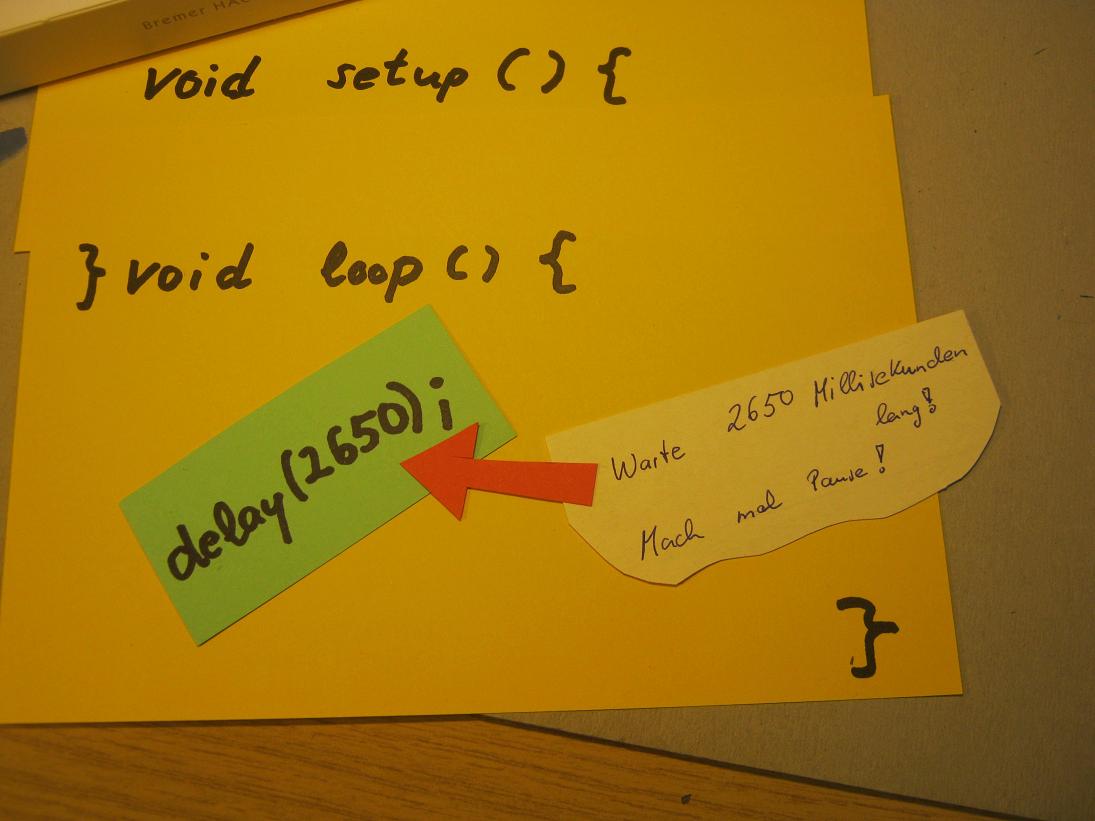 Bremer HAC
void setup () {
} void loop () {
delay(2650);
Warte 2650 Millisekunden
lang!
Mach mal Pause!
}